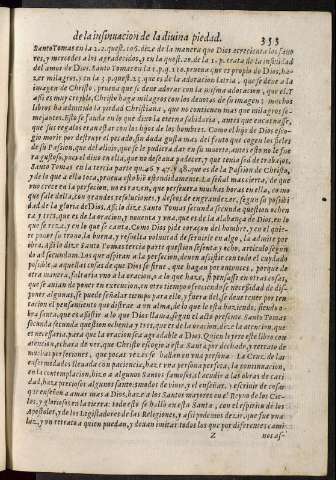 de la insinuacion de la diuina piedad. 353
Santo Tomas en la 2.2. quest. 106. dize de la manera que Dios acrecienta los fauo
res, y mercedes a los agradecidos, y en la quest. 28. de la 1. p. trata de la
del amor de Dios. Santo Tomas en la 1. p. q. 110. prueua que es propio de Dios, ha-
zer milagros, y en la 3. p. quest. 25. que es de la adoracion latria, que se deue a la
imagen de Christo, prueua que se deue adorar con la misma adoracion, que el. Y
assi es muy creyble, Christo haga milagros con los deuotos de su imagen: muchos
libros ha auido de la verdad Christiana, que no contienen mas que milagros se-
mejantes. Esto se funda en lo que dixo la eterna sabiduria, antes que encarnasse,
que sus regalos eran estar con los hijos de los hombres. Como el hijo de Dios esco-
gio morir por destruyr el pecado, sin duda gusta mas del fruto que cogen los fieles
de su Passion, que del aliuio, que se le pudiera dar en su muerte, antes esto no le fue
ra gustoso, pues el dixo en ella, que no deseaua padecer, y que tenia sed de trabajos.
Santo Tomas en la tercia parte q. 46. y 47. y 48. que es de la Passion de Christo,
y de lo que a ella toca, prueua esto bien. La señal mas cierta, de que
vno crece en la perfecion, no es rezar, que perseuera muchas horas en ella, como
que sale della, con grandes resoluciones, y deseos de engrandezer, segun su possibi
dad de la gloria de Dios, assi lo dize Santo Tomas secunda secundæ question ochen
ta y tres, que es de la oracion, y nouenta y vna, que es de la alabança de Dios, en lo
que se reza, y en lo que se canta. Como Dios pide coraçon del hombre, y en el quie-
re poner su trono, la buena, y resuelta voluntad de seruirle en algo, la admite por
obra, assi lo dize Santo Tomas tercia parte question setenta y ocho, articulo segun-
do ad secundum. Los que aspiran a la perfecion, deuen assistir con todo el cuydado
possible, a aquellas cosas de que Dios se sirue, que hagan por entonces, porque de
otra manera, faltaran a la oracion, o a lo que hazen, si pensasse en otras cosas,
que se auian de poner en execucion, en otro tiempo ofreciendose necessidad de dis-
poner algunas, se puede señalar tiempo para ello, y fuera del se deue tener por ten-
tacion el pensamiento que distrae a vn alma, de lo que le esta haziendo, siendo o-
bra santa, que es assistir a lo que Dios llama, segun el acto presente. Santo Tomas
secunda secundæ question ochenta y tres, que es de la oracion, dize la atencion, que
es necessaria, para que la oracion sea agradable a Dios. Quien leyere este libro con
atencion, echara de ver, que Christo escogio a esta Santa por dechado, y retrato de
muchas perfeciones, que pocas vezes se hallan en vna persona. La Cruz de las
enfermedades lleuada con paciencia, haze vna persona perfeta, la continuacion,
en la contemplacion, hizo a algunos Santos famosos, el acudir a las obras de cari-
dad, haze preciosos algunos santos modos de viuir, y el enseñar, y escriuir de cosas
que enseñan a amar mas a Dios, haze a los Santos mayores en el Reyno de los Cie-
los, y gloriosos en la tierra: todo esto se hallo en esta Santa, con el espiritu de los
Apostoles, y de los Legisladores de las Religiones, y assi podemos dezir, que fue vna
luz, y vn retrato a quien puedan, y deuan imitar todos los que por diferentes cami-
Z nos as-